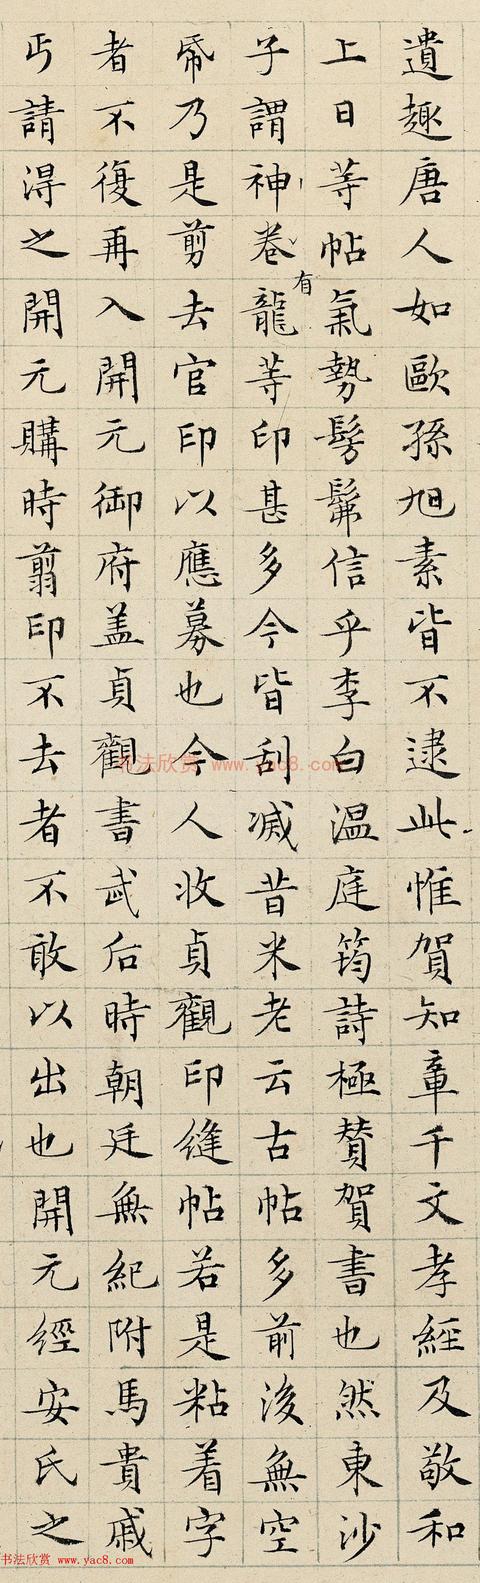 遺趣唐人如歐孫旭素皆不逮此惟賀知章千文孝經及敬和
上日等帖氣勢髣髴信乎李白溫庭筠詩極賛賀書也然東沙
子謂神卷有龍等印甚多今皆刮滅昔米老云古帖多前後無空
帋乃是剪去官印以應募也今人收貞觀印縫帖若是粘着字
者不復再入開元御府盖貞觀書武后時朝廷無紀附馬貴戚
丐請得之開元購時翦印不去者不敢以出也開元經安氏之
书法欣赏 www.yac8.com
书法欣赏 www.yac8.com